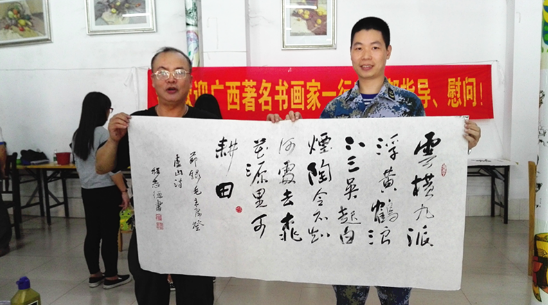 迎广西著名书画家一行
指导、慰问！
雲横九派
浮黄鶴浪
下三吴起白
煙陶令不知
何處去桃
花源里可
耕田
節録毛主席登
廬山詩